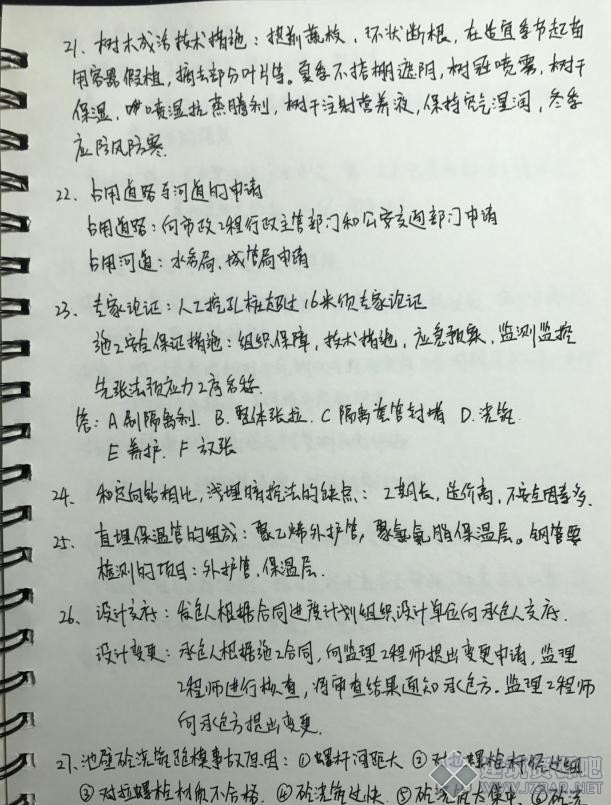 21、树木成活技术措施：提前疏枝，环状断根，在适宜季节起苗
用容器假植，摘去部分叶片等。夏季不搭棚遮阴，树冠喷雾，树干
保湿，喷湿抗蒸腾剂，树干注射营养液，保持空气湿润，冬季
应防风防寒.
22、占用道路与河道的申请
占用道路：向市政工程行政主管部门和公安交通部门申请
占用河道：水务局、城管局申请
23、专家论证：人工挖孔桩超过16米须专家论证
施工安全保证措施：组织保障，技术措施，应急预案、监测监控
先张法预应力工序名称.
答：A刷隔离剂. B.整体张拉. C隔离套管封堵 D.浇筑
E养护. F放张
24、和定向钻相比，浅埋暗挖法的缺点：工期长，造价高，不安全因素多.
25、直埋保温管的组成：聚乙烯外护管，聚氨氧脂保温层。钢管要
检测的项目：外护管、保温层.
26、设计交底：发包人根据合同进度计划组织设计单位向承包人交底.
设计变更：承包人根据施工合同，向监理工程师提出变更申请，监理
工程师进行核查，将审查结果通知承包方. 监理工程师
向承包方提出变更.
27.池壁砼浇筑跑模事故原因：①螺杆间距大 ②对拉螺杆径过细
③对拉螺栓材质不合格. ④砼浇筑过快. ⑤砼
建筑资料吧
www.jzbar.net